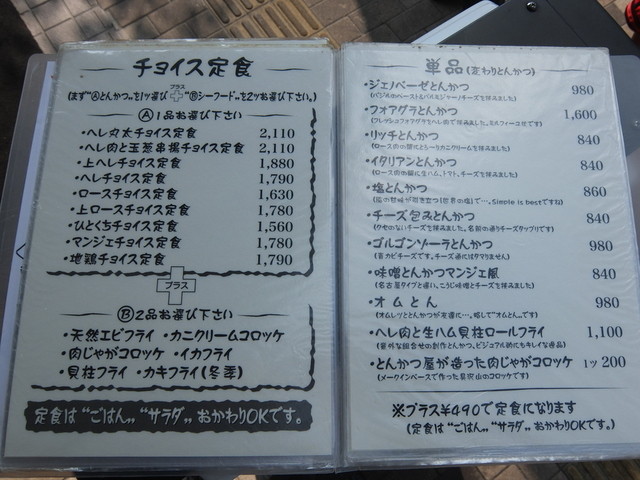 チョイス定食
(まず"Ⓐとんかつ"を1ッ選び プラス "Ⓑシーフード"を2ッお選び下さい。)
Ⓐ1品お選び下さい
・ヘレ丸太チョイス定食 2,110
・ヘレ肉と玉葱串揚チョイス定食 2,110
・上ヘレチョイス定食 1,880
・ヘレチョイス定食 1,790
・ロースチョイス定食 1,630
・上ロースチョイス定食 1,780
・ひとくちチョイス定食 1,560
・マンジェチョイス定食 1,780
・地鶏チョイス定食 1,790
プラス
Ⓑ2品お選び下さい
・天然エビフライ ・カニクリームコロッケ
・肉じゃがコロッケ ・イカフライ
・貝柱フライ ・カキフライ(冬季)
定食は"ごはん""サラダ"おかわりOKです。
単品(変わりとんかつ)
・ジェノベーゼとんかつ 980
(バジルのペースト&パルミジャーノチーズを挟みました)
・フォアグラとんかつ 1,600
(フレッシュフォアグラをヘレ肉で挟みました。ミルフィーユ仕立です)
・リッチとんかつ 840
(ロース肉の間にとろ〜りカニクリームを挟みました)
・イタリアンとんかつ 840
(ロース肉の間に生ハム、トマト、チーズを挟みました)
・塩とんかつ 860
Simple is bestですね)
・チーズ包みとんかつ 840
(クセのないチーズを挟みました。名前の通りチーズタップリです)
・ゴルゴンゾーラとんかつ 980
(青カビチーズです。チーズ通にはタマリません)
・味噌とんかつマンジェ風 840
(名古屋タイプと違い、こうじ味噌とチーズを挟みました)
・オムとん 980
(オムレツととんかつが友達に…。略して"オムとん"です)
・ヘレ肉と生ハム貝柱ロールフライ 1,100
(意外な組合せの創作とんかつ、ビジュアル的にもキレイな逸品)
・とんかつ屋が造った肉じゃがコロッケ 1ッ 200
(メークインベースで作った具沢山のコロッケです)
※プラス¥490で定食になります
(定食は"ごはん""サラダ"おかわりOKです。)